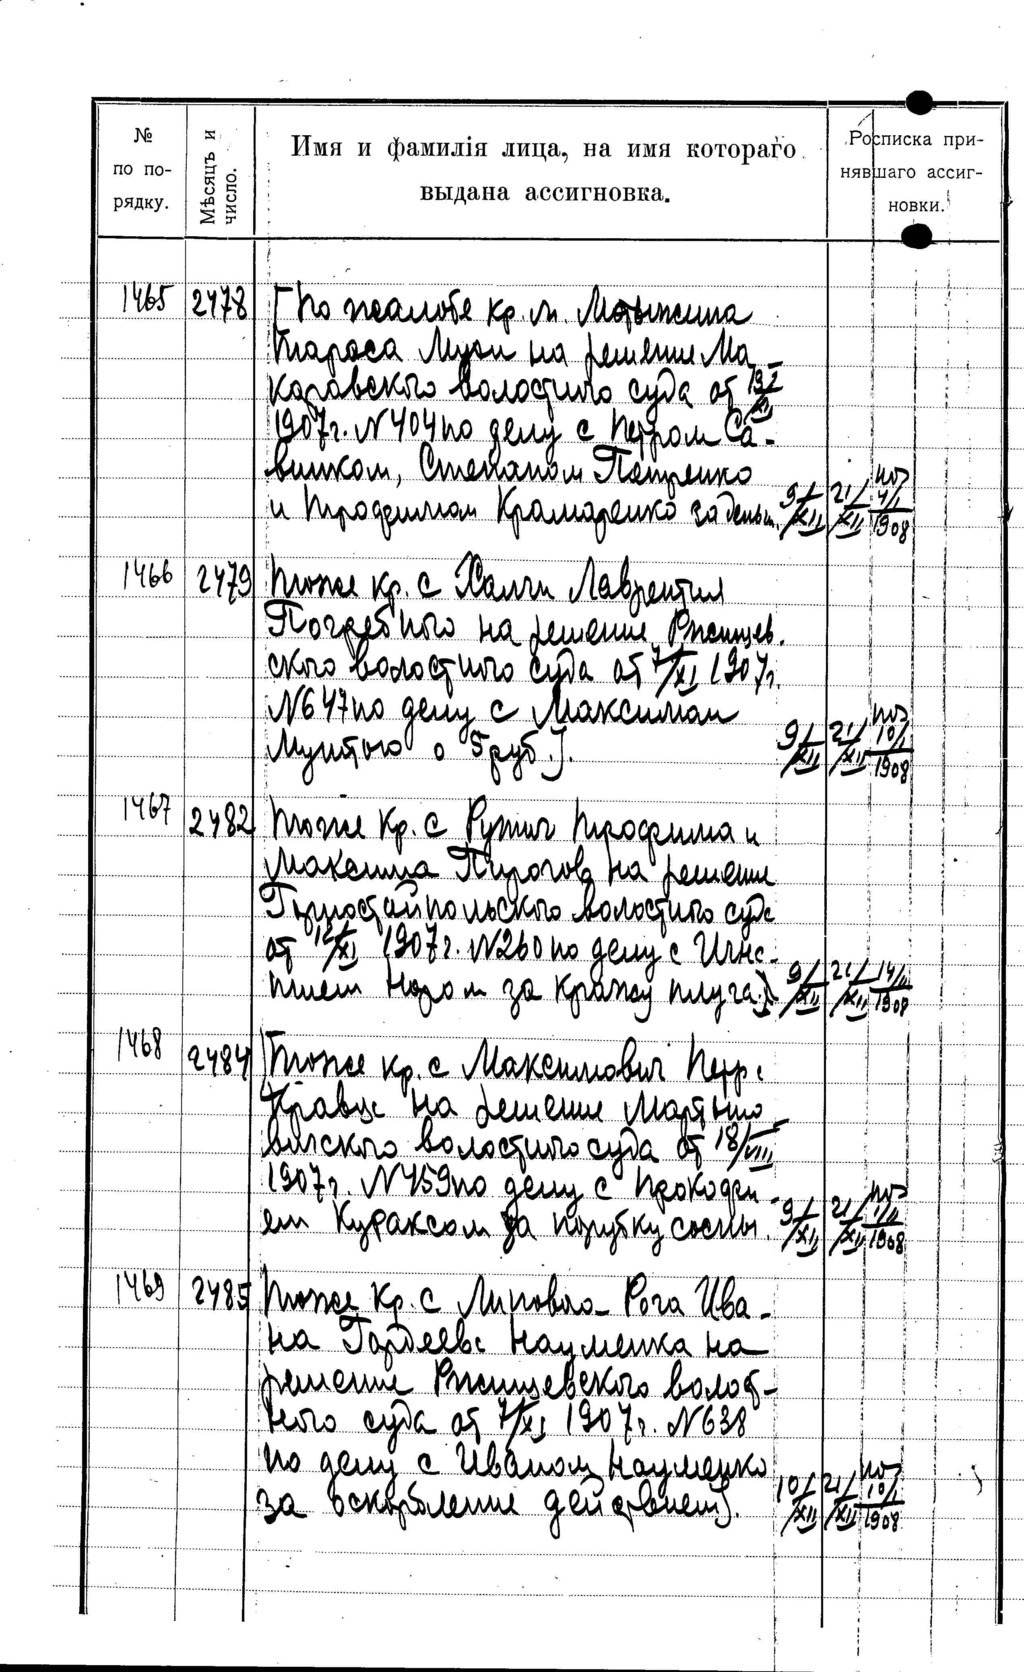 № по порядку.
Мѣсяцъ и число.
Имя и фамилія лица, на имя котораго
выдана ассигновка.
Росписка при-
нявшаго ассиг-
новки.
1465 2478 [По жалобе кр. м. Мотыжина
Тараса Музы на решение Ма-
каровского волостного суда от
1907г. N404 по делу с Петром Са-
вицком, Степаном Петренко
и Трофимом Крамаренко за деньги. 9/XII 21/XII 1908
1466 2479 Тоже кр. с Халчи Лаврентия
Погребного на решение Ржищев.
ского волостного суда от 7/XI 1907г.
N647 по делу с Максимом
Мунтою о груб.]. 9/XII 21/XII 10/I 1908
1467 2482 Тоже кр. с Рутич Трофима и
Максима Пирогов на решение
Горностайпольского волостного суда
от 12/XI 1907г. N260 по делу с Игна-
тием Нором за кражу плуга.] 9/XII 21/XII 14/II 1908
1468 2484 [Тоже кр. с Максимович Петра
Кравца на решение Мартыно
вичского волостного суда от 18/VIII
1907г. N459 по делу с Прокофи-
ем Кураксом за порубку сосны. 9/XII 21/XII 1/II 1908
1469 2485 Тоже кр. с Липоваго-Рога Ива-
на Гордеева Науменка на
решение Ржищевского волост-
ного суда от 7/XI 1907г. N638
по делу с Иваном Науменко
за оскорбление действием]. 10/XII 21/XII 10/I 1908